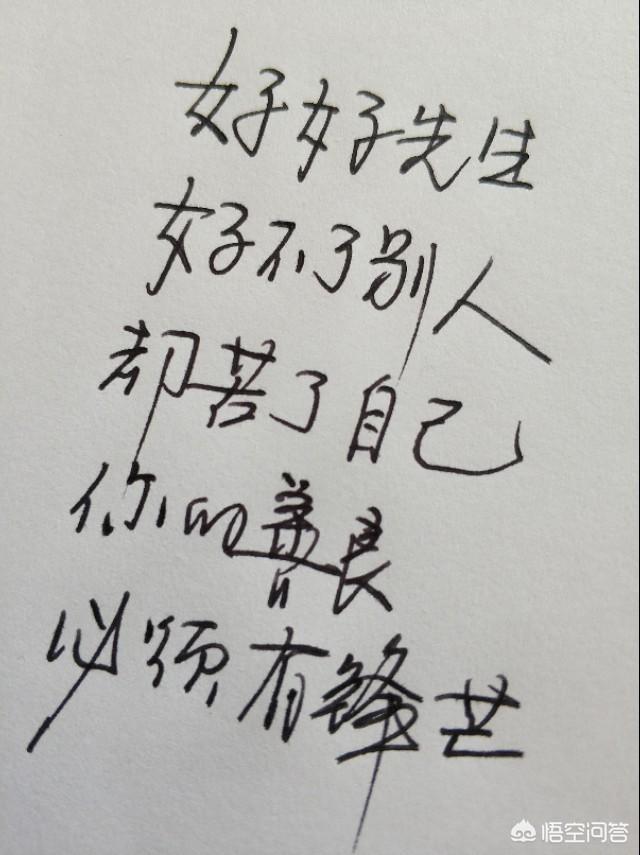 好好先生
好不了别人
却苦了自己
你的善良
必须有锋芒
悟空问答